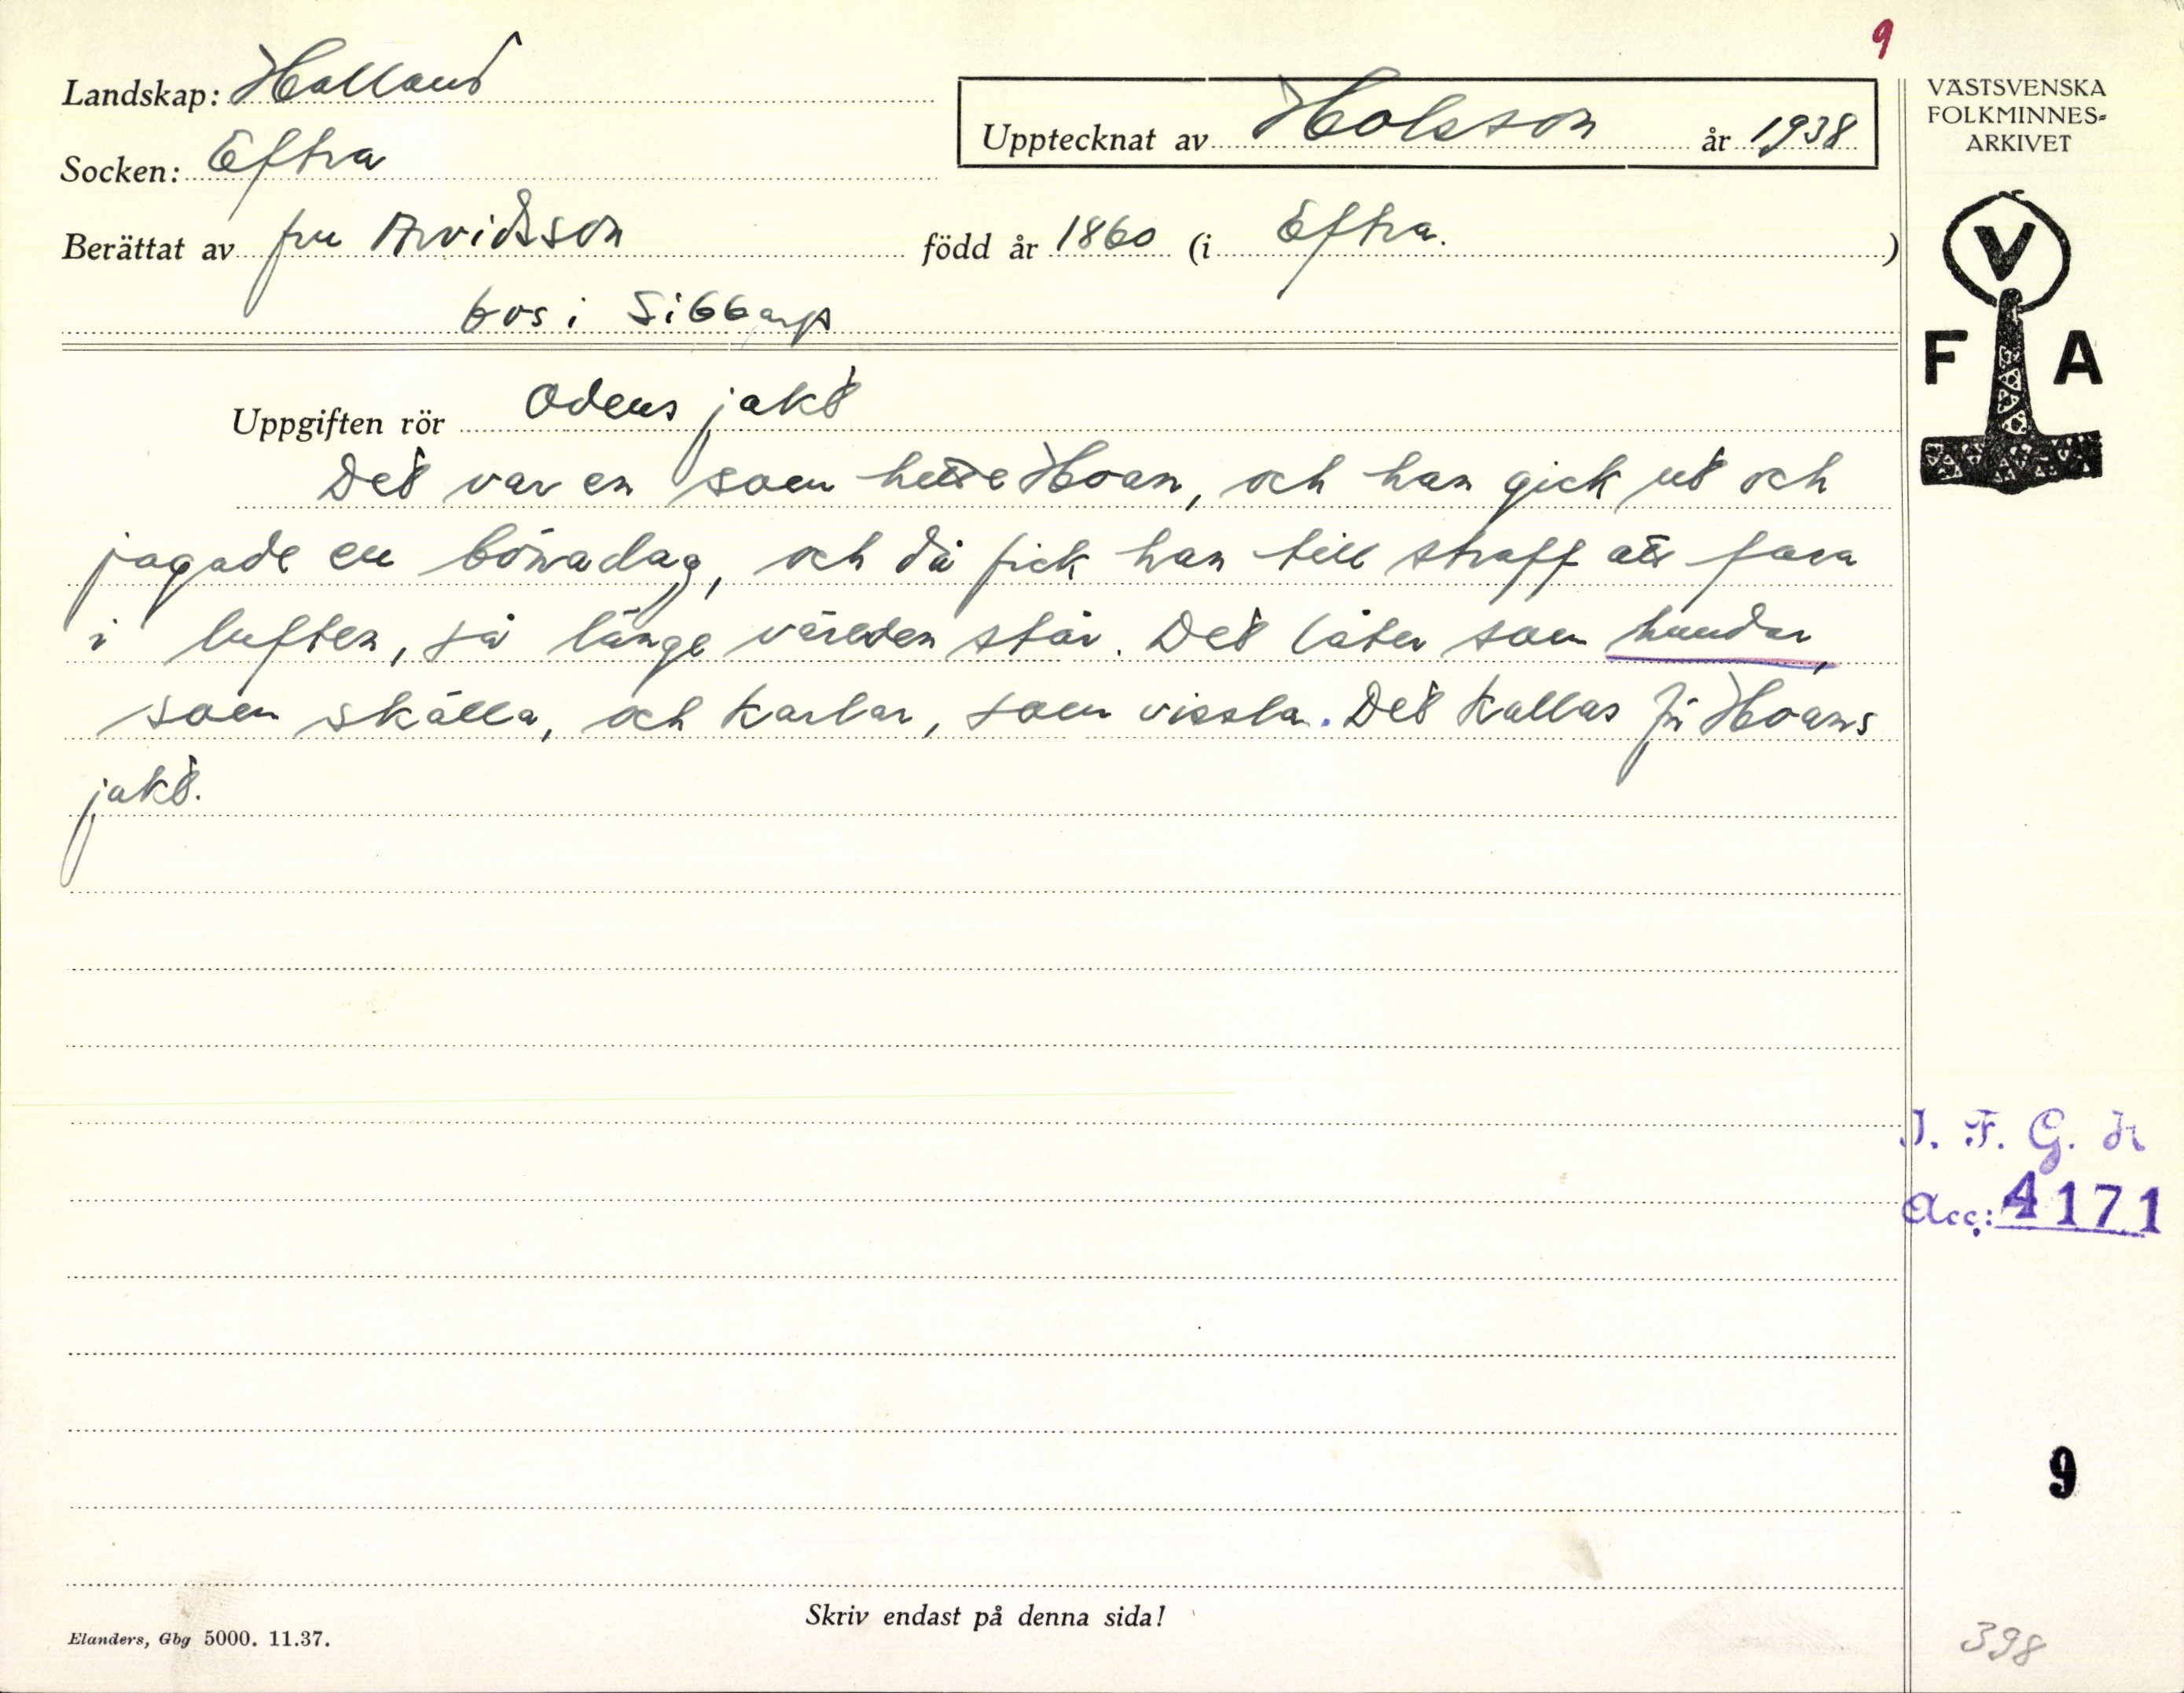 9
Landskap: Halland
Upptecknat av Holsson år 1938
Socken: Eftra
Berättat av fru Arvidsson född år 1860 (i Eftra.)
bos i Sibbarp
Uppgiften rör Odens jakt
Det var en som hette Hoan, och han gick ut och
jagade en bönadag, och då fick han till straff att fara
i luften, så länge världen står. Det låter som hundar,
som skälla, och karlar, som vissla. Det kallas för Hoans
jakt.
VÄSTSVENSKA
FOLKMINNES=
ARKIVET
V
F A
I. F. G. H
Acc: 4171
9
Skriv endast på denna sida!
Elanders, Gbg 5000. 11.37.
398